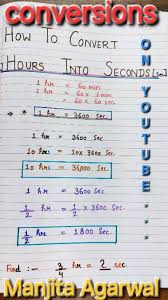 conversions
How To Convert
Hours Into Seconds [sec]
1 hr = 60 min.
1 hr = 60 x 1 min.
= 60 x 60 sec.
1 hr = 3600 Sec.
1 hr = 3600 Sec.
10 hrs = 10 x 3600 Sec.
10 hrs = 36000 Sec.
1 hr = 3600 Sec.
1/2 hr = 3600/2 Sec.
1/2 hr = 1800 Sec.
Find :- 3/4 hr = ? sec
ON YOUTUBE
Manjita Agarwal